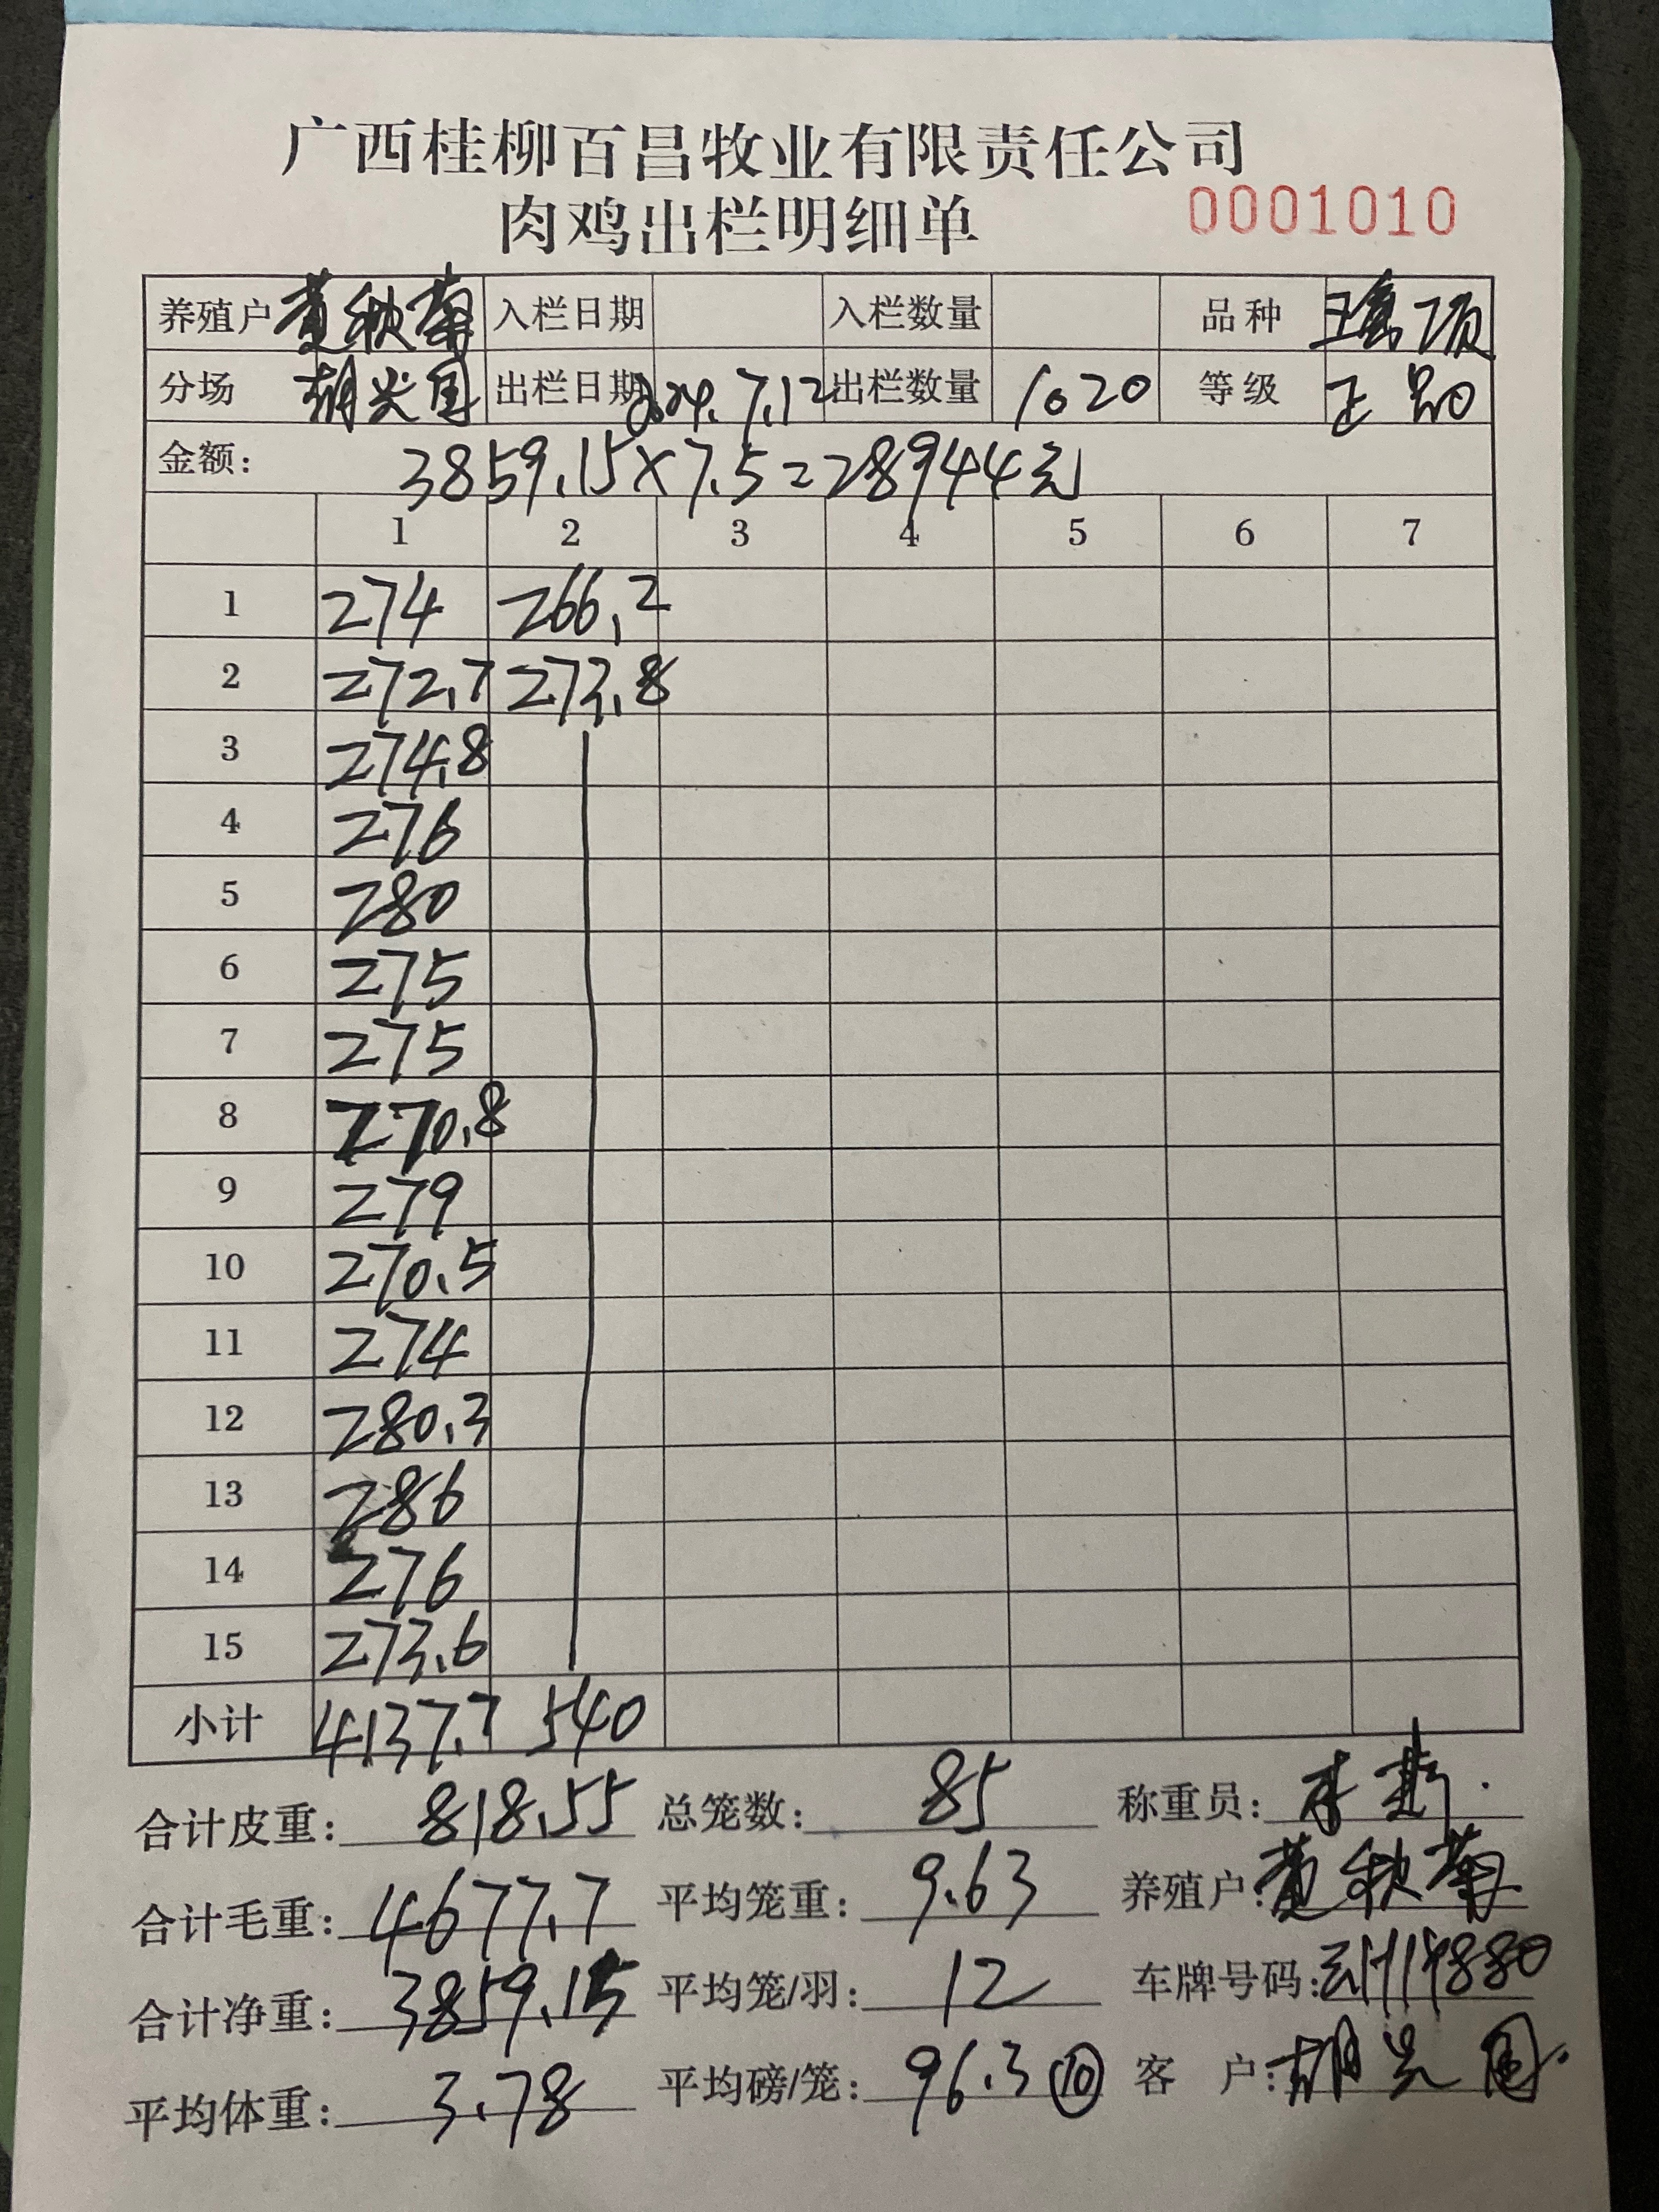 广西桂柳百昌牧业有限责任公司
肉鸡出栏明细单 0001010
养殖户 黄秋菊 入栏日期 入栏数量 品种
分场 胡光国 出栏日期 2024.7.12 出栏数量 1020 等级 正品
金额: 3859.15×7.5=28944元
1 2 3 4 5 6 7
1 274 266.2
2 272.7 273.8
3 274.8
4 276
5 280
6 275
7 275
8 270.8
9 279
10 270.5
11 274
12 280.3
13 286
14 276
15 273.6
小计 4137.7 540
合计皮重: 818.55 总笼数: 85 称重员:
合计毛重: 4677.7 平均笼重: 9.63 养殖户: 黄秋菊
合计净重: 3859.15 平均笼/羽: 12 车牌号码:
平均体重: 3.78 平均磅/笼: 96.3 ⑩ 客户: 胡光国